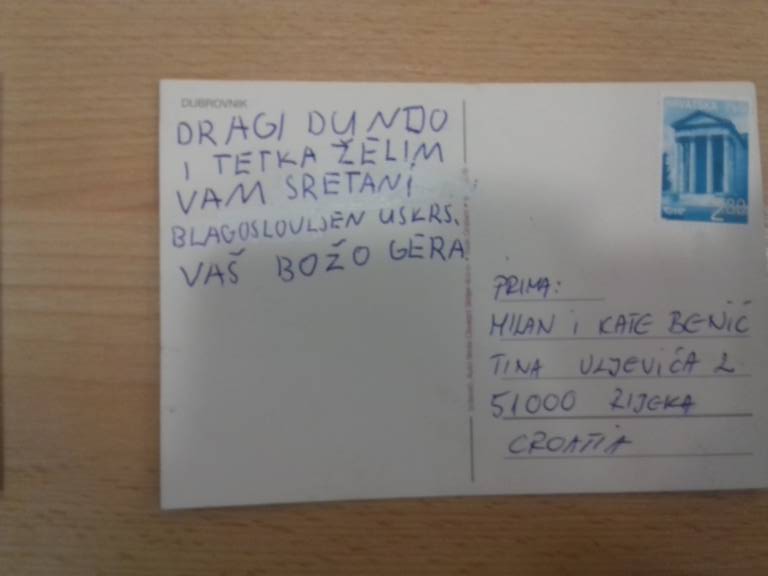 DUBROVNIK
DRAGI DUNDO
I TETKA ŽELIM
VAM SRETAN I
BLAGOSLOVLJEN USKRS.
VAŠ BOŽO GERA
HRVATSKA
2.80
PRIMA:
MILAN i KATE BENIĆ
TINA ULJEVIĆA 2
51000 RIJEKA
CROATIA